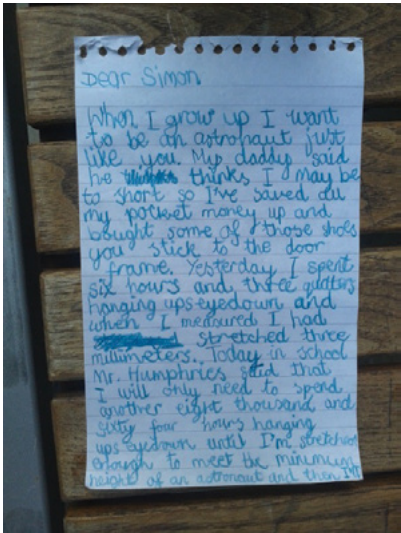 Dear Simon
When I grow up I want
to be an astronaut just
like you. My daddy said
he thinks I may be
to short so I've saved all
my pocket money up and
bought some of those shoes
you stick to the door
frame. Yesterday I spent
six hours and three quatters
hanging ups-eyedown and
when I measured I had
stretched three
millimeters. Today in school
Mr. Humphries said that
I will only need to spend
another eight thousand and
sixty four hours hanging
ups eyedown until I'm stretched
enough to meet the minimum
height of an astronaut and then